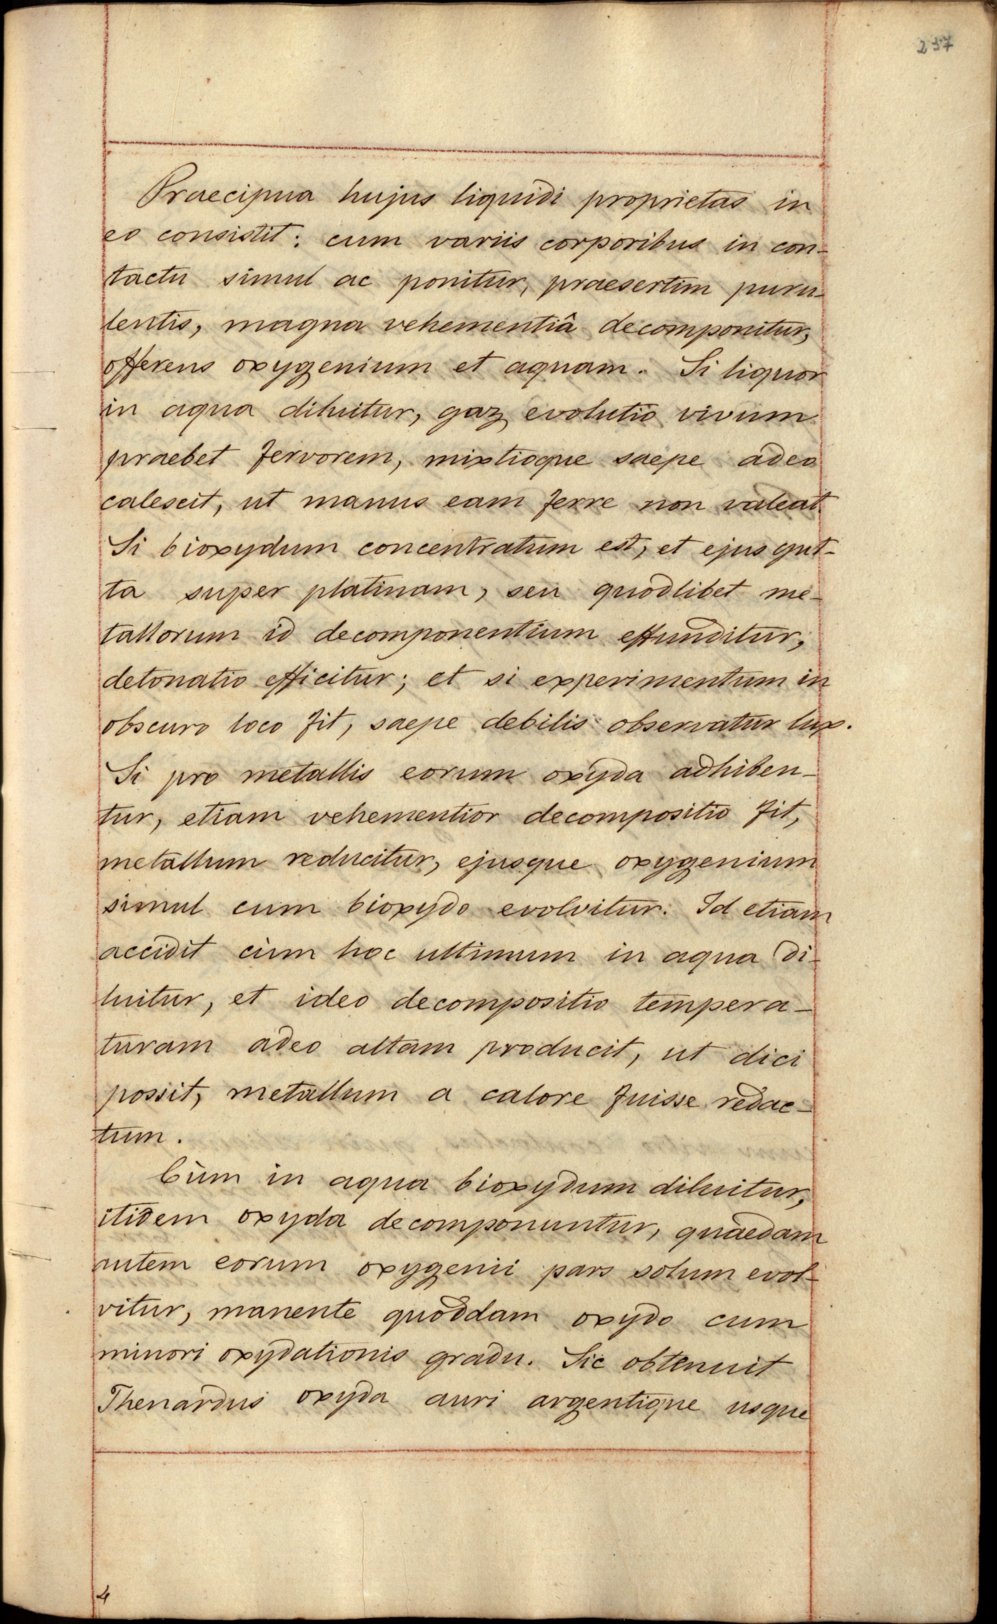 237
Praecipua hujus liquidi proprietas in
eo consistit: cum variis corporibus in con-
tactu simul ac ponitur, praesertim puru-
lentis, magna vehementiâ decomponitur,
offerens oxygenium et aquam. Si liquor
in aqua diluitur, gaz evolutio vivum
praebet fervorem, mixtioque saepe adeo
calescit, ut manus eam ferre non valeat.
Si bioxydum concentratum est, et ejus gut-
ta super platinam, seu quodlibet me-
tallorum id decomponentium effunditur,
detonatio efficitur; et si experimentum in
obscuro loco fit, saepe debilis observatur lux.
Si pro metallis eorum oxyda adhiben-
tur, etiam vehementior decompositio fit,
metallum reducitur, ejusque oxygenium
simul cum bioxydo evolvitur. Id etiam
accidit cùm hoc ultimum in aqua di-
luitur, et ideo decompositio tempera-
turam adeo altam producit, ut dici
possit, metallum a calore fuisse redac-
tum.
Cùm in aqua bioxydum diluitur,
itidem oxyda decomponuntur, quaedam
autem eorum oxygenii pars solum evol-
vitur, manente quoddam oxydo cum
minori oxydationis gradu. Sic obtenuit
Thenardus oxyda auri argentique usque
4